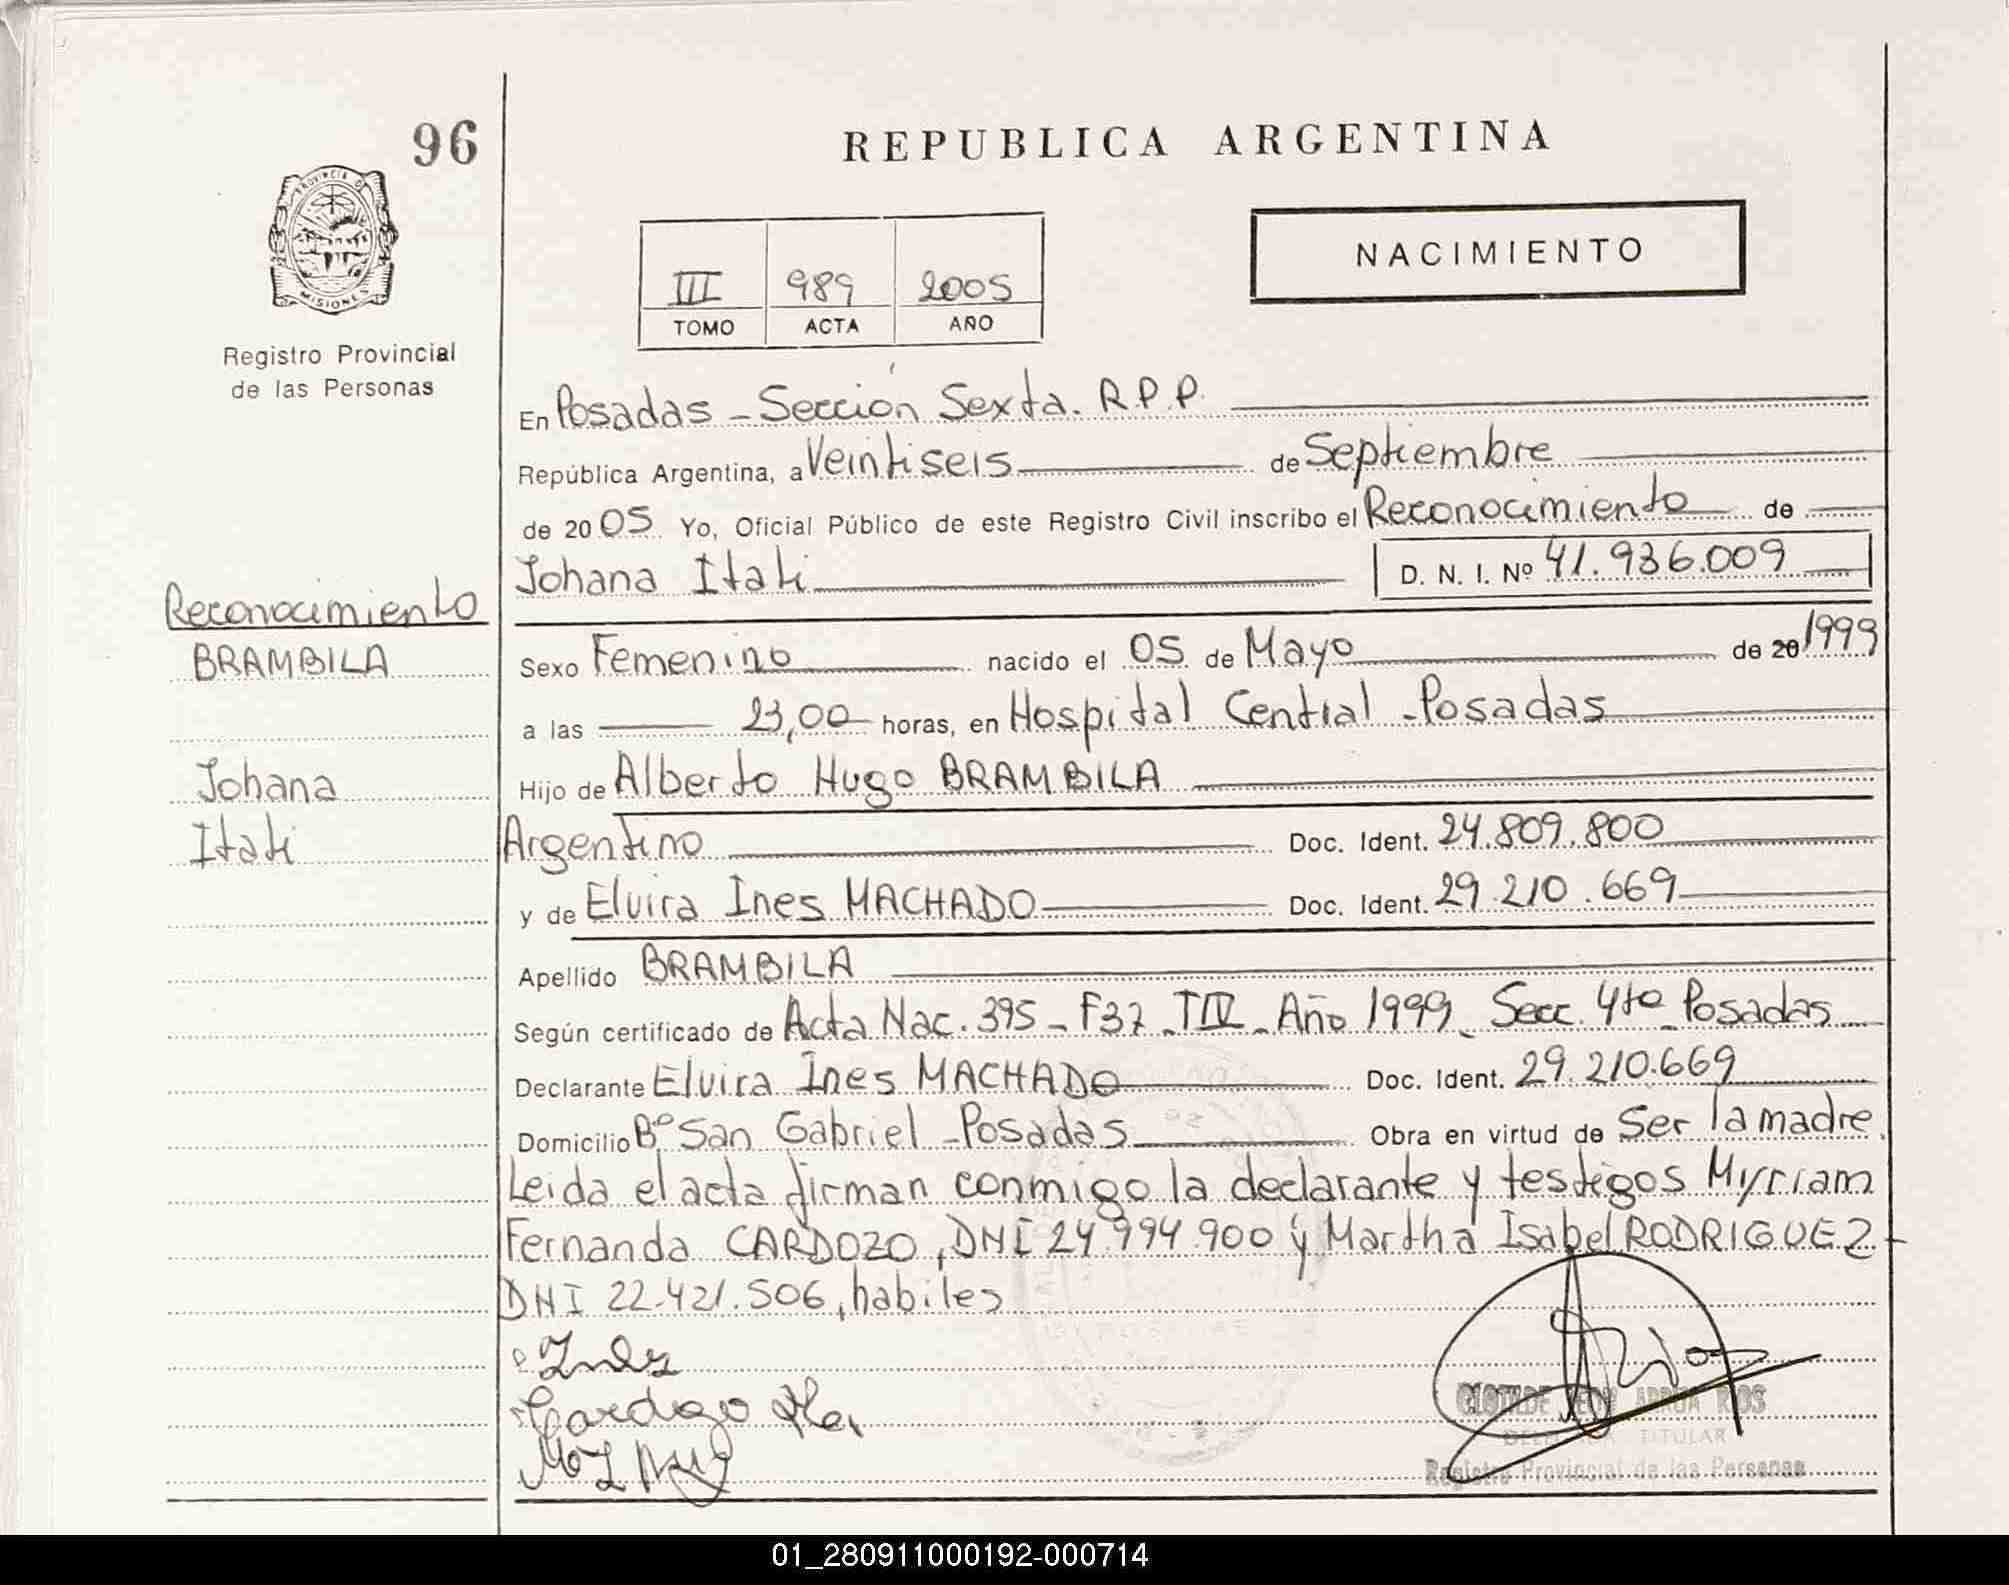 96
REPUBLICA ARGENTINA
PROVINCIA DE
MISIONES
NACIMIENTO
III 989 2005
TOMO ACTA AÑO
Registro Provincial
de las Personas
En Posadas - Sección Sexta. R.P.P.
República Argentina, a Veintiseis de Septiembre
de 2005 Yo, Oficial Público de este Registro Civil inscribo el Reconocimiento de
Johana Itati D. N. I. Nº 41.936.009
Reconocimiento
BRAMBILA
Johana
Itati
Sexo Femenino nacido el 05 de Mayo de 20 1999
a las 23,00 horas, en Hospital Central - Posadas
Hijo de Alberto Hugo BRAMBILA
Argentino Doc. Ident. 24.809.800
y de Elvira Ines MACHADO Doc. Ident. 29.210.669
Apellido BRAMBILA
Según certificado de Acta Nac. 395 - F37 - TIV - Año 1999 - Secc. 4ta - Posadas
Declarante Elvira Ines MACHADO Doc. Ident. 29.210.669
Domicilio Bº San Gabriel - Posadas Obra en virtud de Ser la madre.
Leida el acta firman conmigo la declarante y testigos Myrriam
Fernanda CARDOZO, DNI 24.994.900 y Martha Isabel RODRIGUEZ
DNI 22.421.506, habiles
Cardozo
CLOTILDE RIOS
TITULAR
Registro Provincial de las Personas
01_280911000192-000714